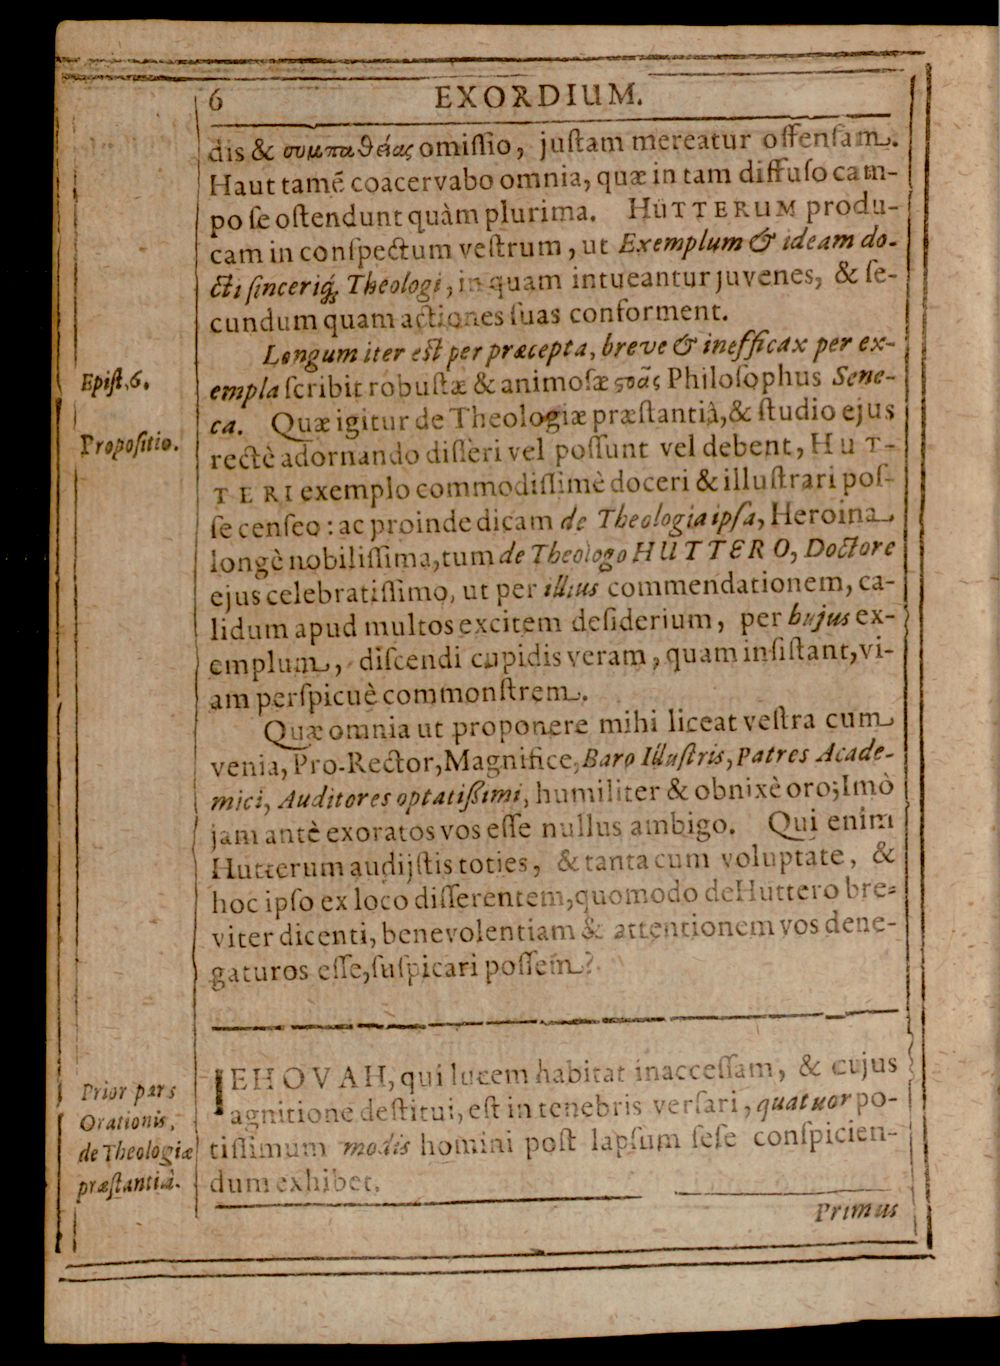 6 EXORDIUM.
dis & συμπαθείας omissio, justam mereatur offensam.
Haut tamē coacervabo omnia, quæ in tam diffuso cam-
po se ostendunt quàm plurima. HÜTTERUM produ-
cam in conspectum vestrum, ut Exemplum & ideam do-
cti sinceriq; Theologi, in quam intueantur juvenes, & se-
cundum quam actiones suas conforment.
Longum iter est per præcepta, breve & inefficax per ex-
Epist. 6.
empla scribit robustæ & animosæ ςοᾶς Philosophus Sene-
ca. Quæ igitur de Theologiæ præstantiâ, & studio ejus
Propositio.
rectè adornando disseri vel possunt vel debent, HUT-
TERI exemplo commodissimè doceri & illustrari pos-
se censeo: ac proinde dicam de Theologia ipsa, Heroina
longè nobilissima, tum de Theologo HUTTERO, Doctore
ejus celebratissimo, ut per illius commendationem, ca-
lidum apud multos excitem desiderium, per hujus ex-
emplum, discendi cupidis veram, quam insistant, vi-
am perspicuè commonstrem.
Quæ omnia ut proponere mihi liceat vestra cum
venia, Pro-Rector, Magnifice, Baro Illustris, Patres Acade-
mici, Auditores optatißimi, humiliter & obnixè oro; Imò
jam antè exoratos vos esse nullus ambigo. Qui enim
Hutterum audijstis toties, & tanta cum voluptate, &
hoc ipso ex loco differentem, quomodo de Huttero bre-
viter dicenti, benevolentiam & attentionem vos dene-
gaturos esse, suspicari possem?
Prior pars
Orationis,
de Theologiæ
præstantiâ.
IEHOVAH, qui lucem habitat inaccessam, & cujus
agnitione destitui, est in tenebris versari, quatuor po-
tissimum modis homini post lapsum sese conspicien-
dum exhibet.
Primus